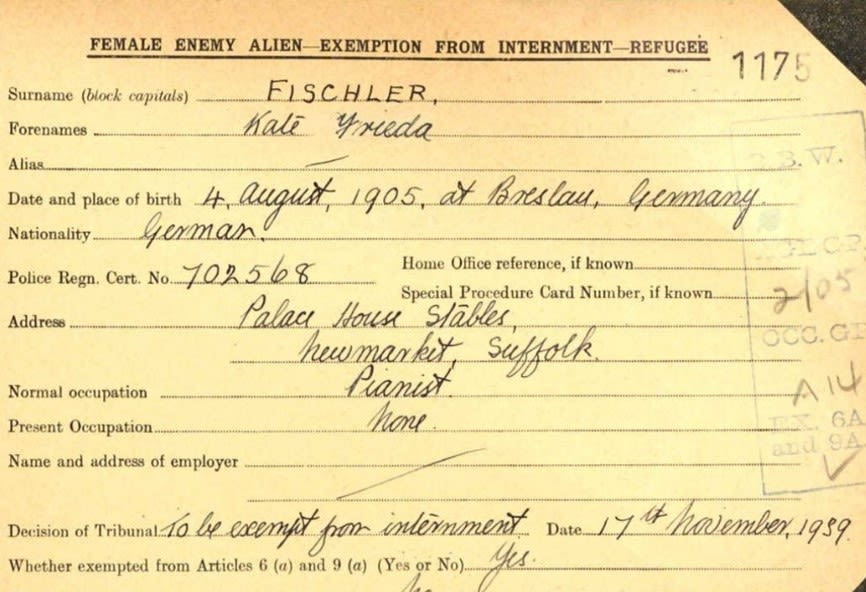 FEMALE ENEMY ALIEN—EXEMPTION FROM INTERNMENT—REFUGEE
1175
Surname (block capitals) FISCHLER,
Forenames Kate Frieda
Alias —
Date and place of birth 4, August, 1905, at Breslau, Germany.
Nationality German.
Police Regn. Cert. No. 702568
Home Office reference, if known
Special Procedure Card Number, if known
Address Palace House Stables,
Newmarket, Suffolk.
Normal occupation Pianist.
Present Occupation None.
Name and address of employer
Decision of Tribunal To be exempt from internment Date 17th November, 1939.
Whether exempted from Articles 6 (a) and 9 (a) (Yes or No) Yes.
B.W.
2/05
OCC. GP
A 14
EX. 6A
and 9A